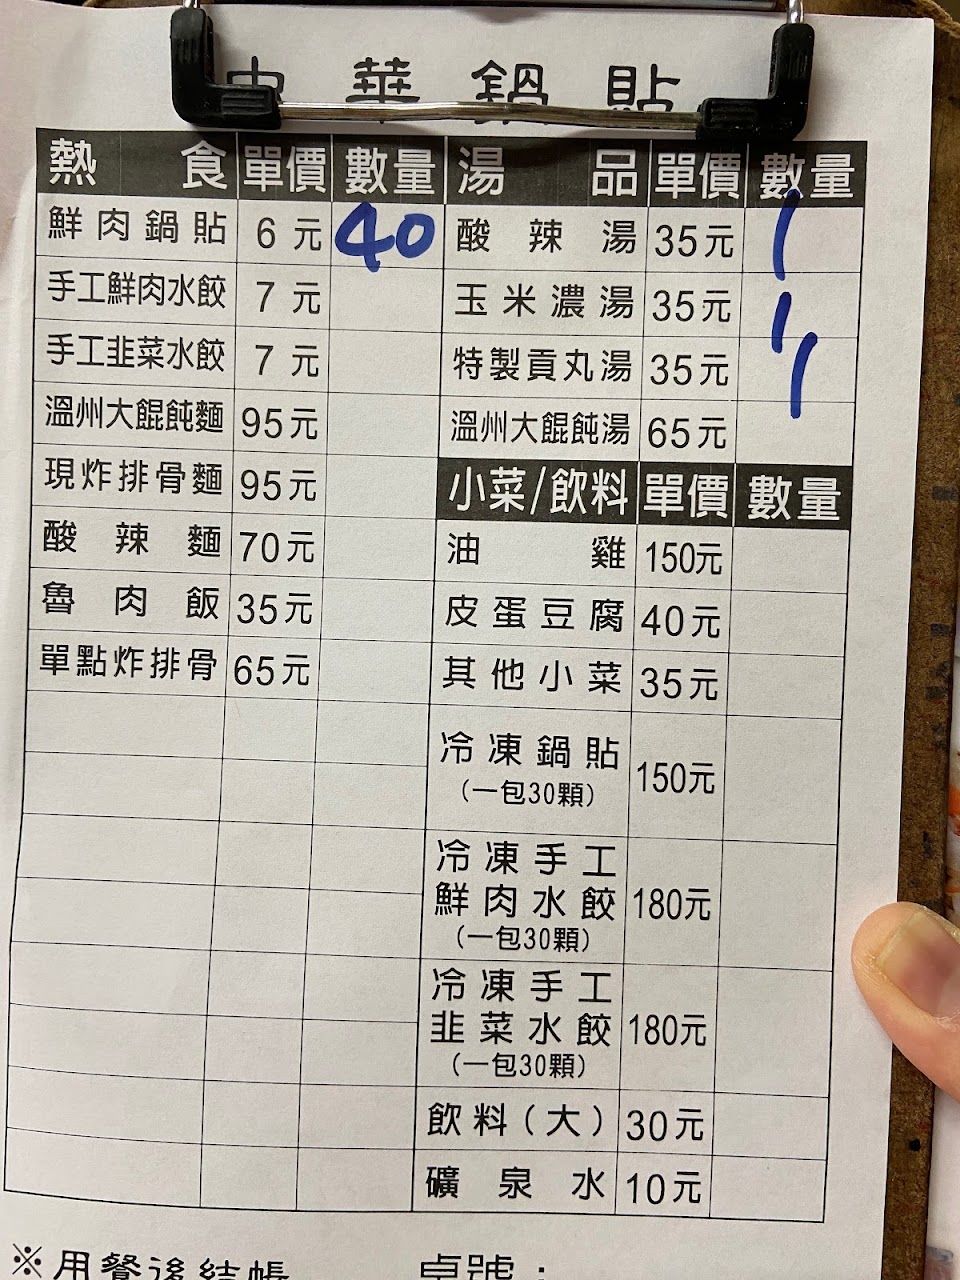 中華鍋貼
熱食 單價 數量 湯品 單價 數量
鮮肉鍋貼 6元 40 酸辣湯 35元 1
手工鮮肉水餃 7元 玉米濃湯 35元 1
手工韭菜水餃 7元 特製貢丸湯 35元 1
溫州大餛飩麵 95元 溫州大餛飩湯 65元
現炸排骨麵 95元 小菜/飲料 單價 數量
酸辣麵 70元 油雞 150元
魯肉飯 35元 皮蛋豆腐 40元
單點炸排骨 65元 其他小菜 35元
冷凍鍋貼 150元
(一包30顆)
冷凍手工
鮮肉水餃 180元
(一包30顆)
冷凍手工
韭菜水餃 180元
(一包30顆)
飲料(大) 30元
礦泉水 10元
※用餐後結帳 桌號：